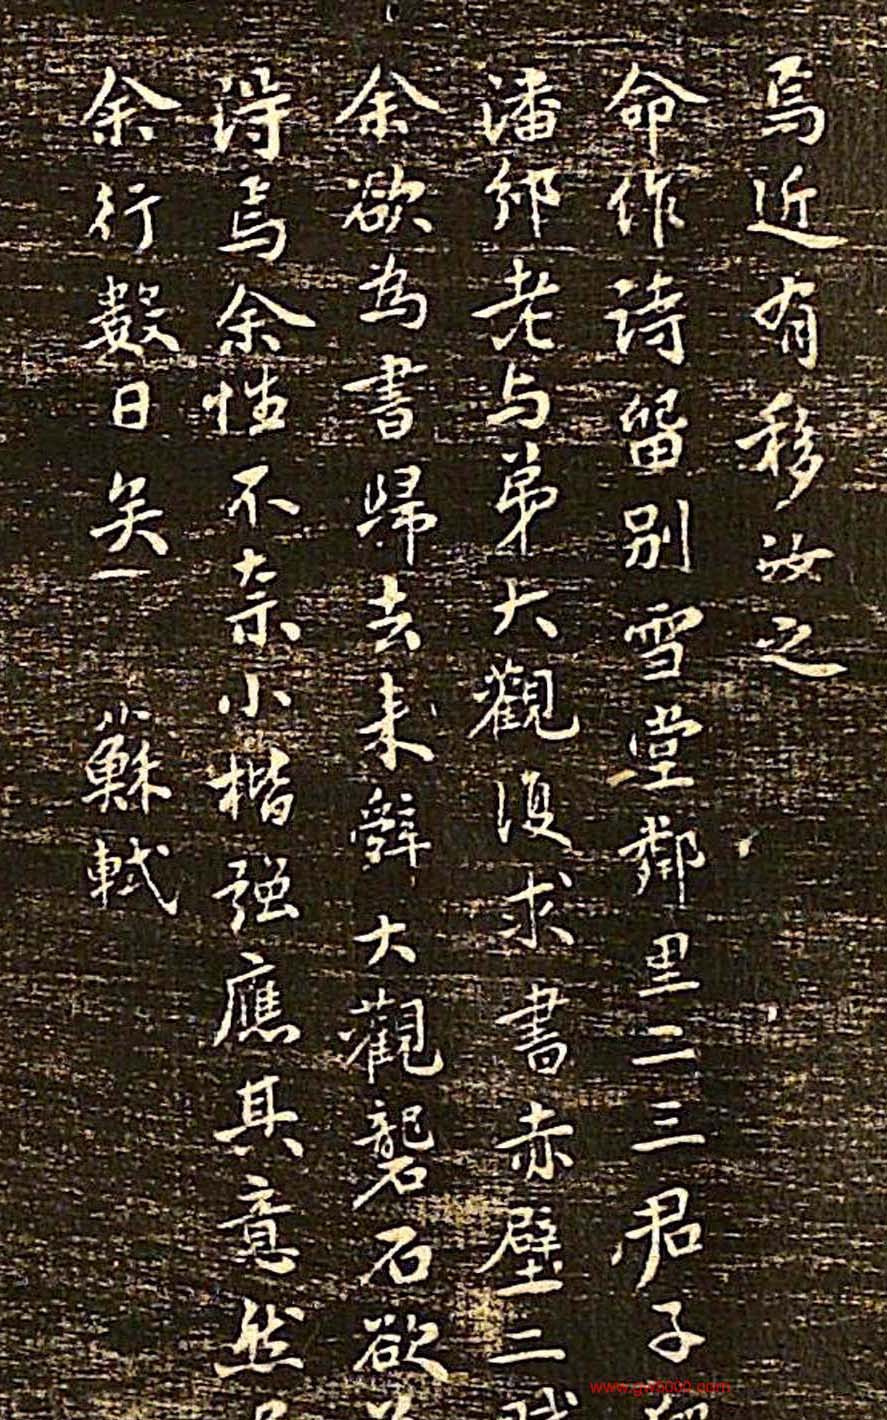 焉近有移汝之
命作詩留別雪堂鄰里二三君子
潘邠老与弟大觀復求書赤壁二賦
余欲為書歸去來辭大觀礱石欲
得焉余性不奈小楷強應其意然
余行數日矣蘇軾
www.gx8000.com